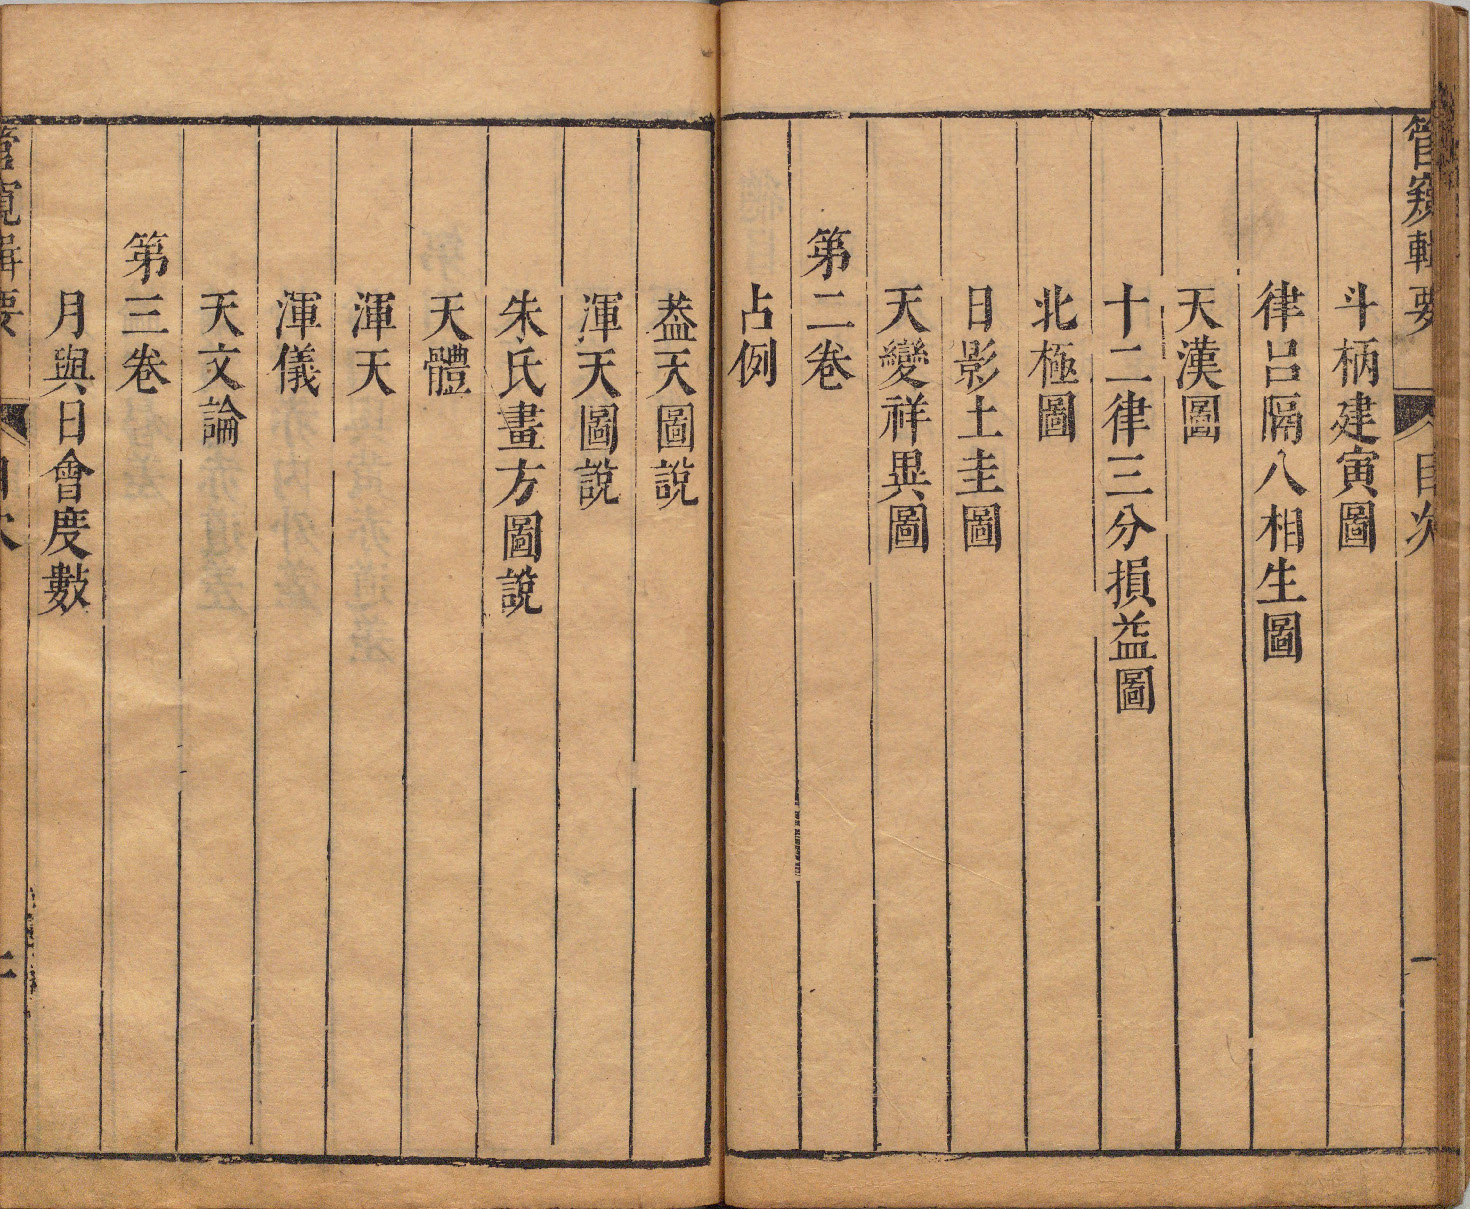 管窺輯要 目次 一
斗柄建寅圖
律呂隔八相生圖
天漢圖
十二律三分損益圖
北極圖
日影土圭圖
天變祥異圖
第二卷
占例
葢天圖說
渾天圖說
朱氏畫方圖說
天體
渾天
渾儀
天文論
第三卷
月與日會度數
管窺輯要 目次 二